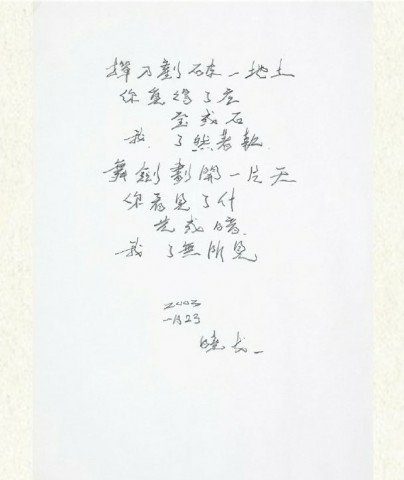 揮刀劃破一地土
你真得了產
金或石
我 了然若執
舞劍劃開一片天
你看見了什
光或暗
我 了無所見
2003
一月23